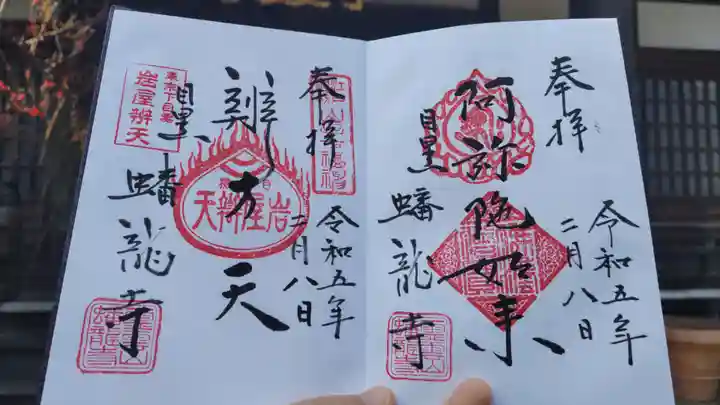 奉拝
令和五年
二月八日
阿弥陀如来
目黒
蟠龍寺
奉拝
令和五年
二月八日
辨才天
岩屋辨天
目黒
蟠龍寺
東京下目黒
岩屋辨天